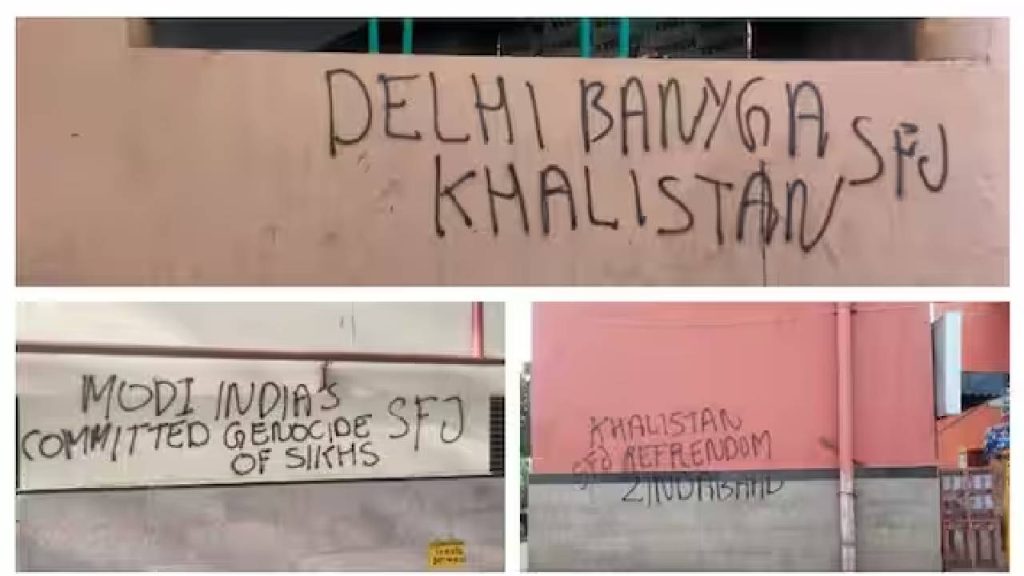 DELHI BANYGA
KHALISTAN SFJ
MODI INDIA'S
COMMITTED GENOCIDE SFJ
OF SIKHS
KHALISTAN
SFJ REFRENDOM
ZINDABAAD